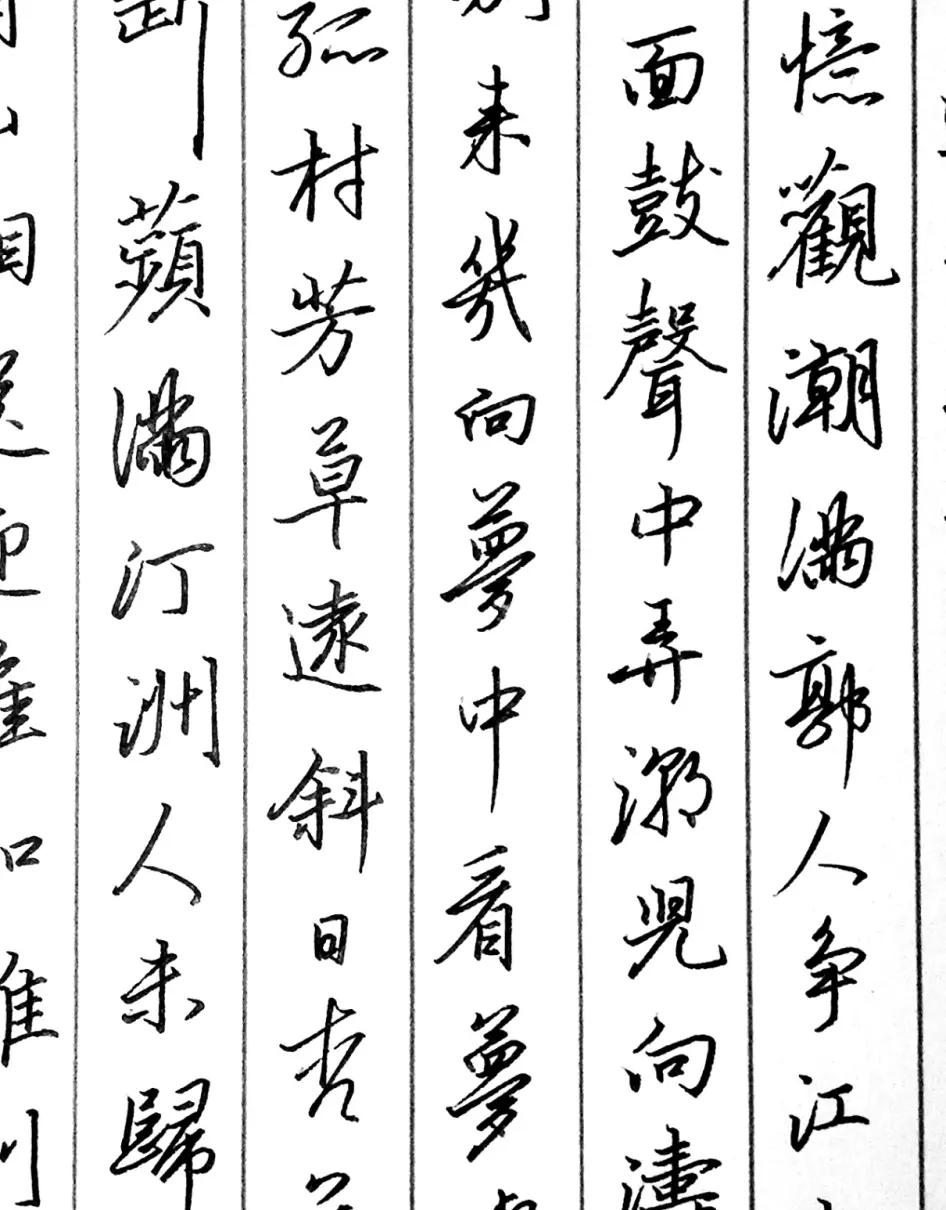 憶觀潮滿郭人争江
面鼓聲中弄潮兒向濤
来幾向夢中看夢
孤村芳草遠斜日杏
斷蘋滿汀洲人未歸